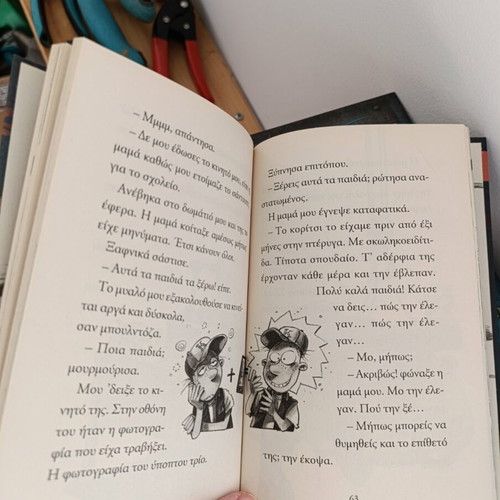 – Μμμμ, απάντησα.
– Δε μου έδωσες το κινητό μου, είπε η
μαμά καθώς μου ετοίμαζε το σάντουιτς
για το σχολείο.
Ανέβηκα στο δωμάτιό μου και της το
έφερα. Η μαμά κοίταξε αμέσως μήπως
είχε μηνύματα. Έτσι κάνουν όλοι.
Ξαφνικά σάστισε.
– Αυτά τα παιδιά τα ξέρω! είπε.
Το μυαλό μου εξακολουθούσε να κινεί-
ται αργά και δύσκολα,
σαν μπουλντόζα.
– Ποια παιδιά;
μουρμούρισα.
Μου 'δειξε το κι-
νητό της. Στην οθόνη
του ήταν η φωτογρα-
φία που είχα τραβήξει.
Η φωτογραφία του ύποπτου τρίο.
Ξύπνησα επιτόπου.
– Ξέρεις αυτά τα παιδιά; ρώτησα ανα-
στατωμένος.
Η μαμά μου έγνεψε καταφατικά.
– Το κορίτσι το είχαμε πριν από έξι
μήνες στην πτέρυγα. Με σκωληκοειδίτι-
δα. Τίποτα σπουδαίο. Τ' αδέρφια της
έρχονταν κάθε μέρα και την έβλεπαν.
Πολύ καλά παιδιά! Κάτσε
να δεις… πώς την έλε-
γαν… πώς την έλε-
γαν…
– Μο, μήπως;
– Ακριβώς! φώναξε η
μαμά μου. Μο την έλε-
γαν. Πού την ξέ…
– Μήπως μπορείς να
θυμηθείς και το επίθετό
της; την έκοψα.
63